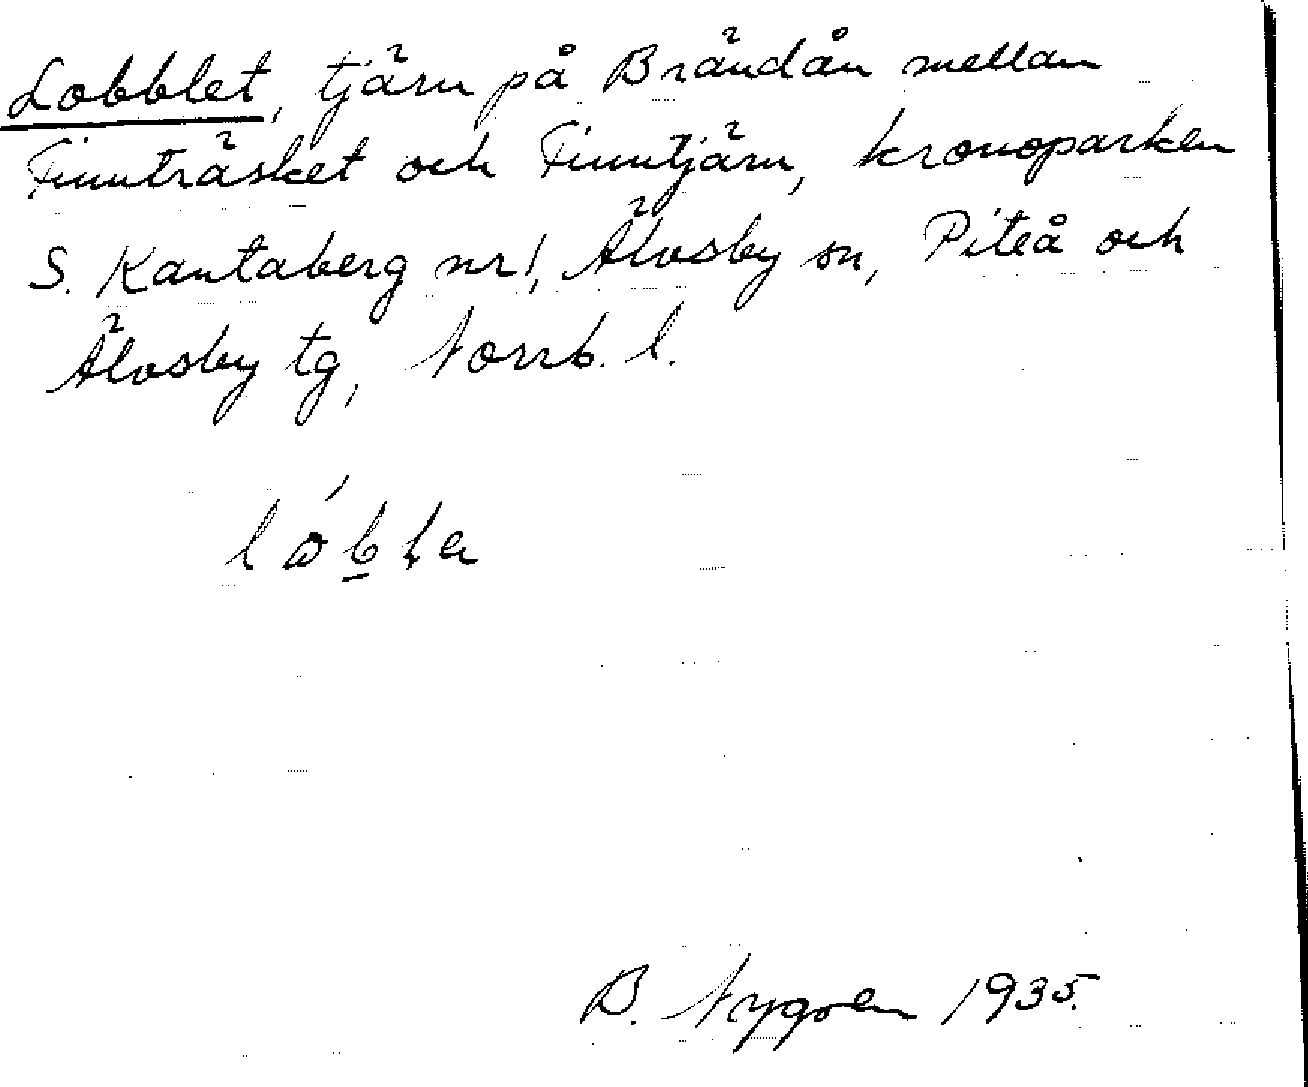 Lobblet, tjärn på Brändån mellan
Finnträsket och Finntjärn, kronoparken
S. Kantaberg nr 1, Älvsby sn, Piteå och
Älvsby tg, Norrb. l.
B. Nygren 1935.